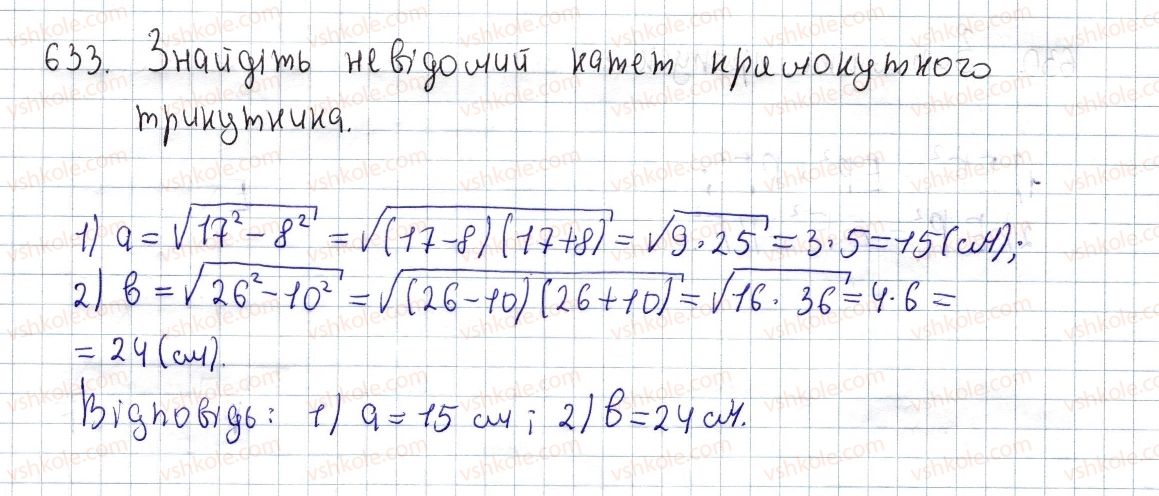 633. Знайдіть невідомий катет прямокутного
трикутника.
1) a = √(17² - 8²) = √((17-8)(17+8)) = √(9·25) = 3·5 = 15 (см);
2) b = √(26² - 10²) = √((26-10)(26+10)) = √(16·36) = 4·6 =
= 24 (см).
Відповідь: 1) a = 15 см; 2) b = 24 см.
vshkole.com